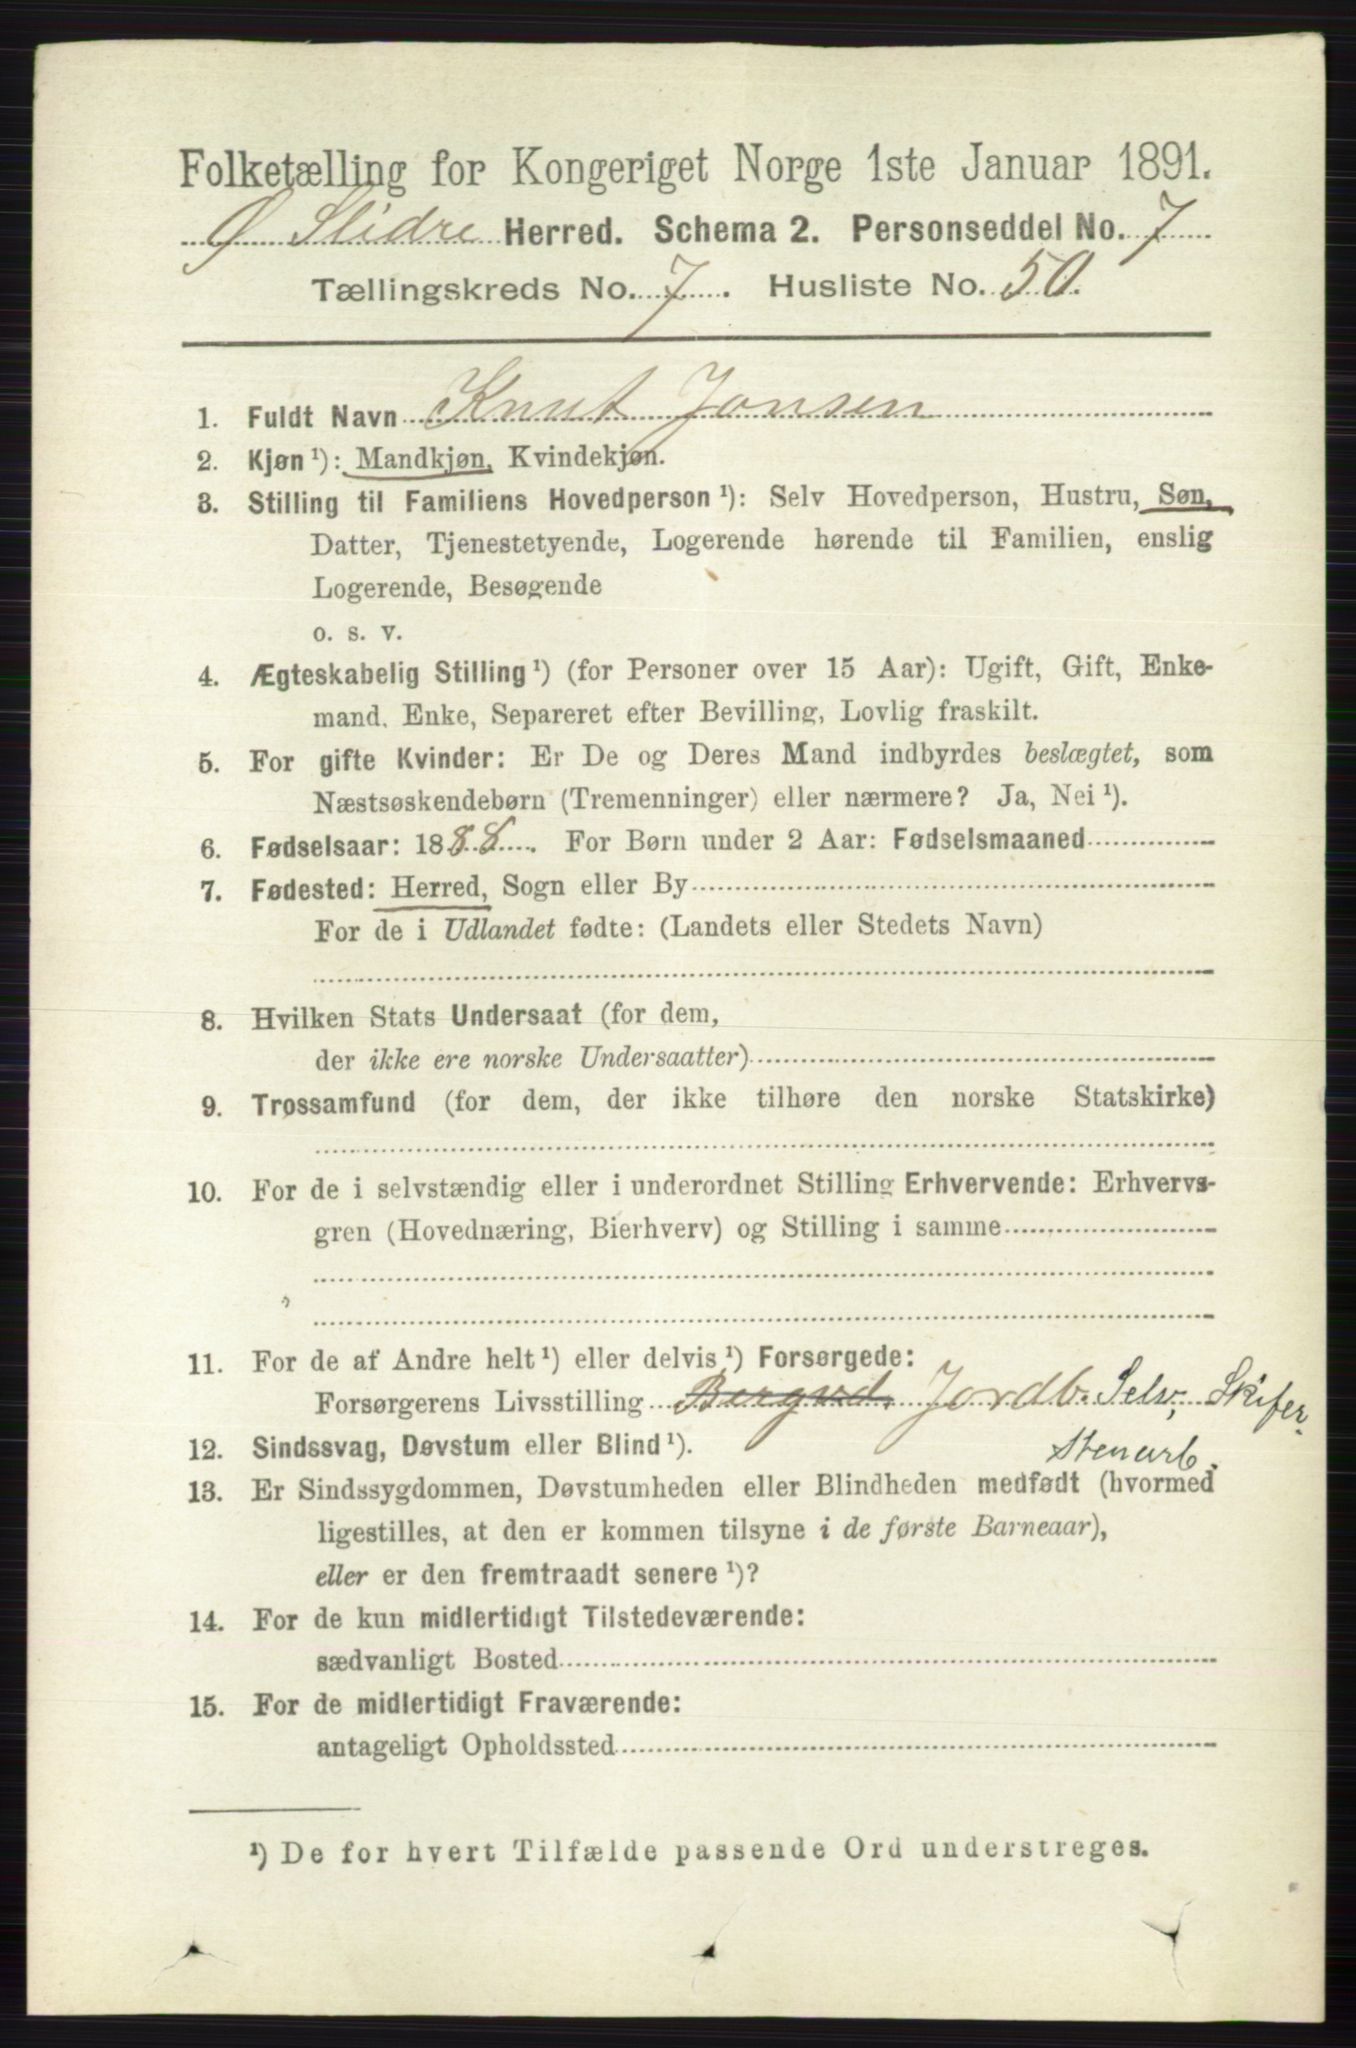 Folketælling for Kongeriget Norge 1ste Januar 1891.
Ø Slidre Herred. Schema 2. Personseddel No. 7
Tællingskreds No. 7. Husliste No. 50.
1. Fuldt Navn Knut Jonsen
2. Kjøn ¹): Mandkjøn, Kvindekjøn.
3. Stilling til Familiens Hovedperson ¹): Selv Hovedperson, Hustru, Søn,
Datter, Tjenestetyende, Logerende hørende til Familien, enslig
Logerende, Besøgende
o. s. v.
4. Ægteskabelig Stilling ¹) (for Personer over 15 Aar): Ugift, Gift, Enke-
mand, Enke, Separeret efter Bevilling, Lovlig fraskilt.
5. For gifte Kvinder: Er De og Deres Mand indbyrdes beslægtet, som
Næstsøskendebørn (Tremenninger) eller nærmere? Ja, Nei ¹).
6. Fødselsaar: 1888. For Børn under 2 Aar: Fødselsmaaned
7. Fødested: Herred, Sogn eller By
For de i Udlandet fødte: (Landets eller Stedets Navn)
8. Hvilken Stats Undersaat (for dem,
der ikke ere norske Undersaatter)
9. Trossamfund (for dem, der ikke tilhøre den norske Statskirke)
10. For de i selvstændig eller i underordnet Stilling Erhvervende: Erhvervs-
gren (Hovednæring, Bierhverv) og Stilling i samme
11. For de af Andre helt ¹) eller delvis ¹) Forsørgede:
Forsørgerens Livsstilling Bergvd. Jordb. Selv, Skifer-
Stenarb.
12. Sindssvag, Døvstum eller Blind ¹).
13. Er Sindssygdommen, Døvstumheden eller Blindheden medfødt (hvormed
ligestilles, at den er kommen tilsyne i de første Barneaar),
eller er den fremtraadt senere ¹)?
14. For de kun midlertidigt Tilstedeværende:
sædvanligt Bosted
15. For de midlertidigt Fraværende:
antageligt Opholdssted
¹) De for hvert Tilfælde passende Ord understreges.